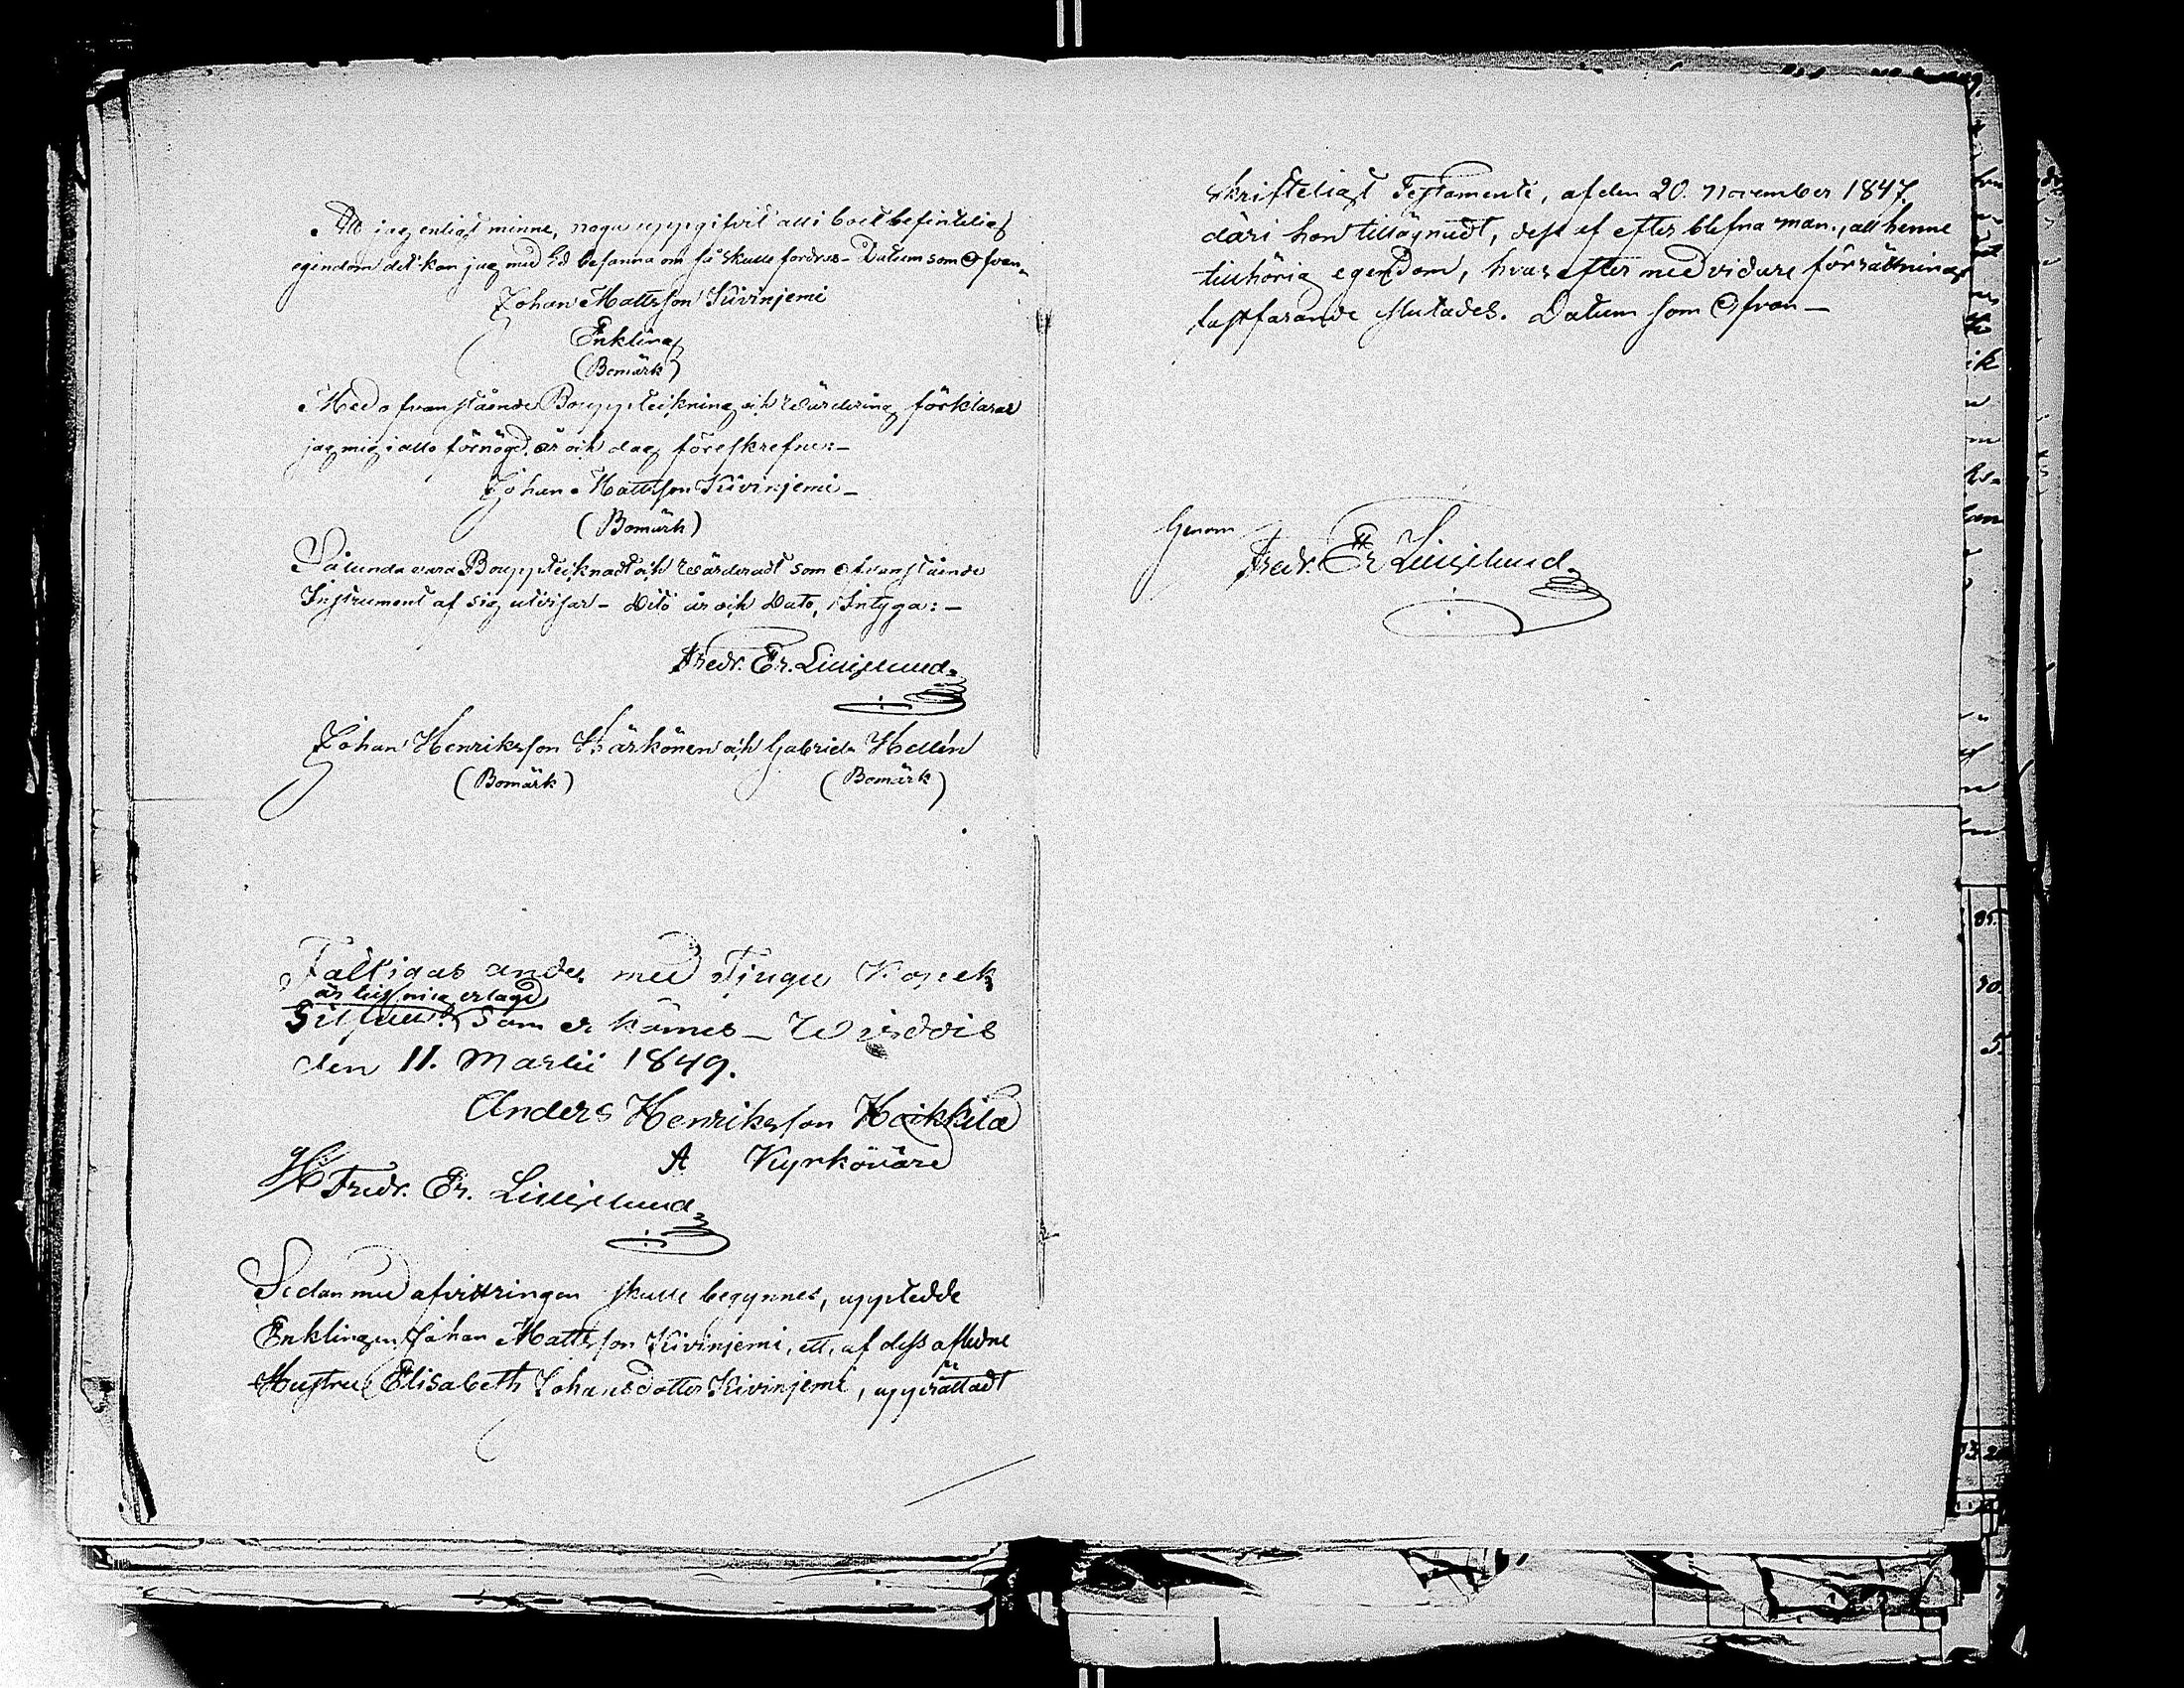 At jag enligt minne, noga uppgifvit all i boet befintelig
egendom det kan jag med Ed besanna om så skulle fordras - Datum som Ofvan -
Johan Mattsson Kivinjemi
Enkling
(Bomärk)
Med ofvanstående Bouppteckning och Wärdering förklarar
jag mig i allo förnögd, år och dag föreskrefne: -
Johan Mattsson Kivinjemi -
(Bomärk)
Sålunda vara Boupptecknadt och Wärderadt som Ofvanstående
Instrument af sig utvisar - Ditö år och Dato, Intyga: -
Fredr. Er. Lilljelund
Johan Henriksson Härkönen och Gabriel Hellén
(Bomärk) (Bomärk)
Fattigas andel med Tjugu Kopek
är till mig erlagd
Silfver. Som erkännes - Widdis
den 11. Martii 1849.
Anders Henriksson Heikkilä
A Kyrkovärd
Fredr. Er. Lilljelund
Sedan med afvittringen skulle begynnes, upptedde
Enklingen Johan Mattsson Kivinjemi, ett, af dess aflidne
Hustru Elisabeth Johansdotter Kivinjemi, upprättadt
Skrifteligt Testamente, af den 20. November 1847.
däri hon tillägnadt, dess efter blefna man, all henne
tillhörig egendom, hvarefter med vidare förrättning
fastfarande slutades. Datum som Ofvan -
Genom
Fredr. Er. Lilljelund